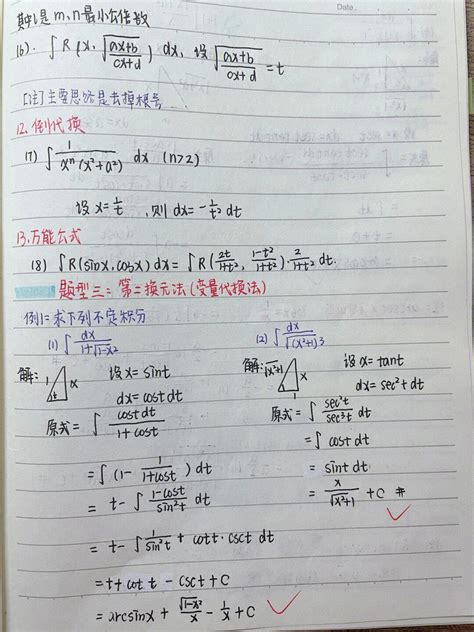 其中l是m,n最小公倍数
16). ∫R(x, √(ax+b)/(cx+d)) dx, 设 √(ax+b)/(cx+d) = t
[注]主要思路是去掉根号
12.倒代换
17) ∫ 1/(xⁿ(x²+a²)) dx (n>2)
设 x=1/t, 则 dx=-1/t² dt
13.万能公式
18) ∫R(sinx,cosx)dx = ∫R(2t/(1+t²), (1-t²)/(1+t²))·2/(1+t²) dt.
题型三:第二换元法(变量代换法)
例1=求下列不定积分
(1) ∫ dx/(1+√(1-x²))
(2) ∫ dx/√(x²+1)³
解: 1 x t 设x=sint
dx=costdt
原式= ∫ costdt/(1+cost)
=∫(1- 1/(1+cost))dt
= t-∫ (1-cost)/sin²t dt
= t-∫ 1/sin²t + cott·csct dt
=t+cott-csct+C
=arcsinx+ √(1-x²)/x - 1/x +C
解: √(x²+1) x 1 设x=tant
dx=sec²tdt
原式=∫ sec²t/sec³t dt
=∫costdt
= sintdt
= x/√(x²+1) +C #